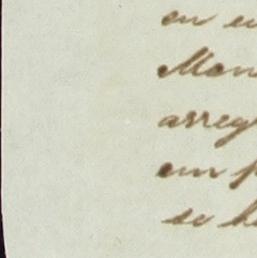 en
Man
arreg
em p
se h